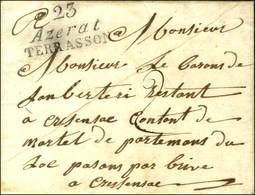 P 23
Azerat
TERRASSON
A Monsieur
A Monsieur Le Barons de
Sanberteri Restant
a cresensac Contont de
martel de partemans du
Loc pasons par brive
a Cressensac